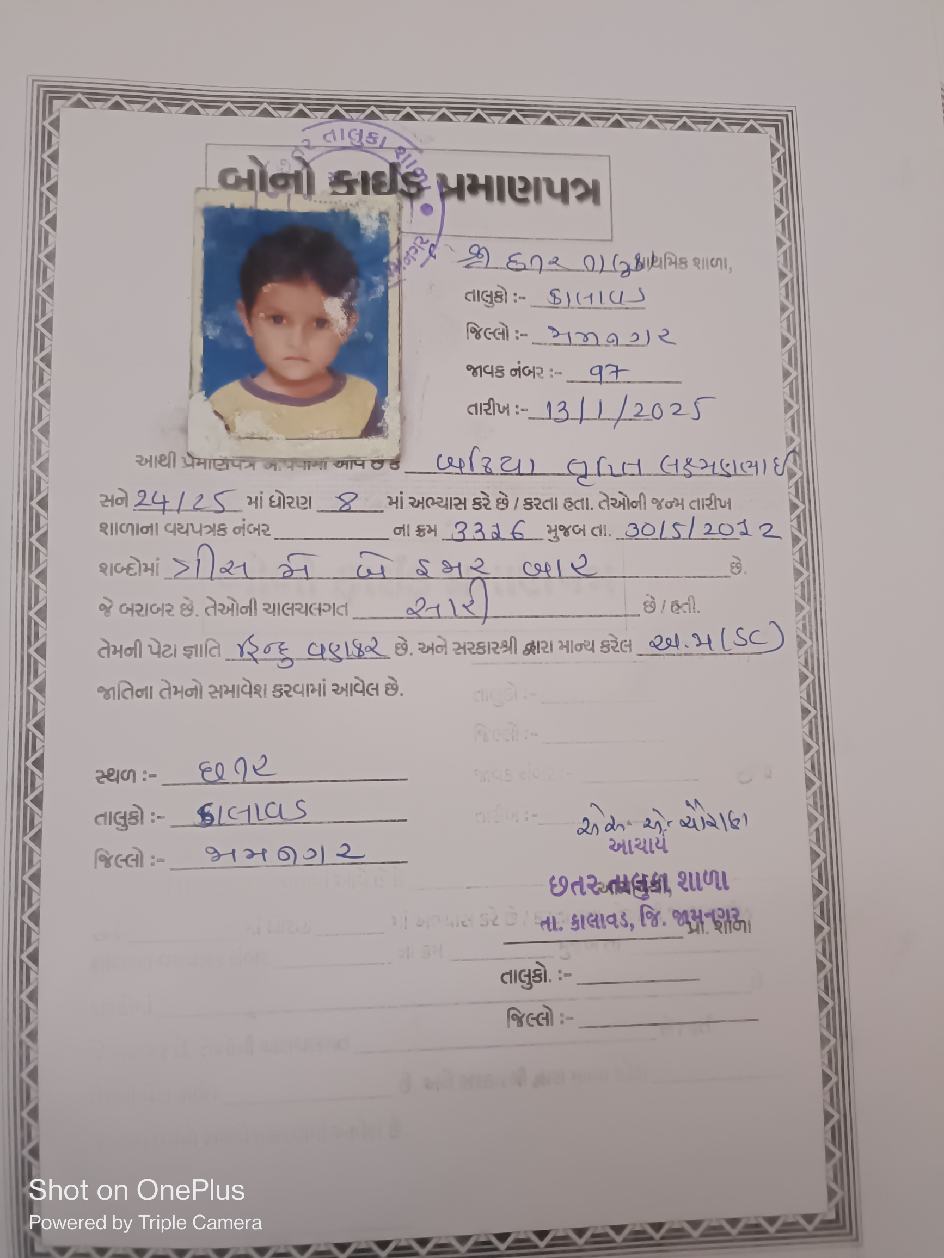 છતર તાલુકા શાળા
બોનો ફાઈડ પ્રમાણપત્ર
શ્રી છતર તાલુકા પ્રાથમિક શાળા,
તાલુકો :- કાલાવડ
જિલ્લો :- જામનગર
જાવક નંબર :- ૧૧૭
તારીખ :- 13/1/2025
આથી પ્રમાણપત્ર આપવામાં આવે છે કે લક્ષ્મણભાઈ
સને 24/25 માં ધોરણ 8 માં અભ્યાસ કરે છે / કરતા હતા. તેઓની જન્મ તારીખ
શાળાના વયપત્રક નંબર ના ક્રમ 3326 મુજબ તા. 30/5/2012
શબ્દોમાં ત્રીસ મે બે હજાર બાર છે.
જે બરાબર છે. તેઓની ચાલચલગત સારી છે / હતી.
તેમની પેટા જ્ઞાતિ હિન્દુ વણકર છે. અને સરકારશ્રી દ્વારા માન્ય કરેલ અ.જા (SC)
જાતિના તેમનો સમાવેશ કરવામાં આવેલ છે.
સ્થળ :- છતર
તાલુકો :- કાલાવડ
જિલ્લો :- જામનગર
આચાર્ય
છતર તાલુકા શાળા
તા. કાલાવડ, જિ. જામનગર
પ્રા. શાળા
તાલુકો. :-
જિલ્લો :-
Shot on OnePlus
Powered by Triple Camera